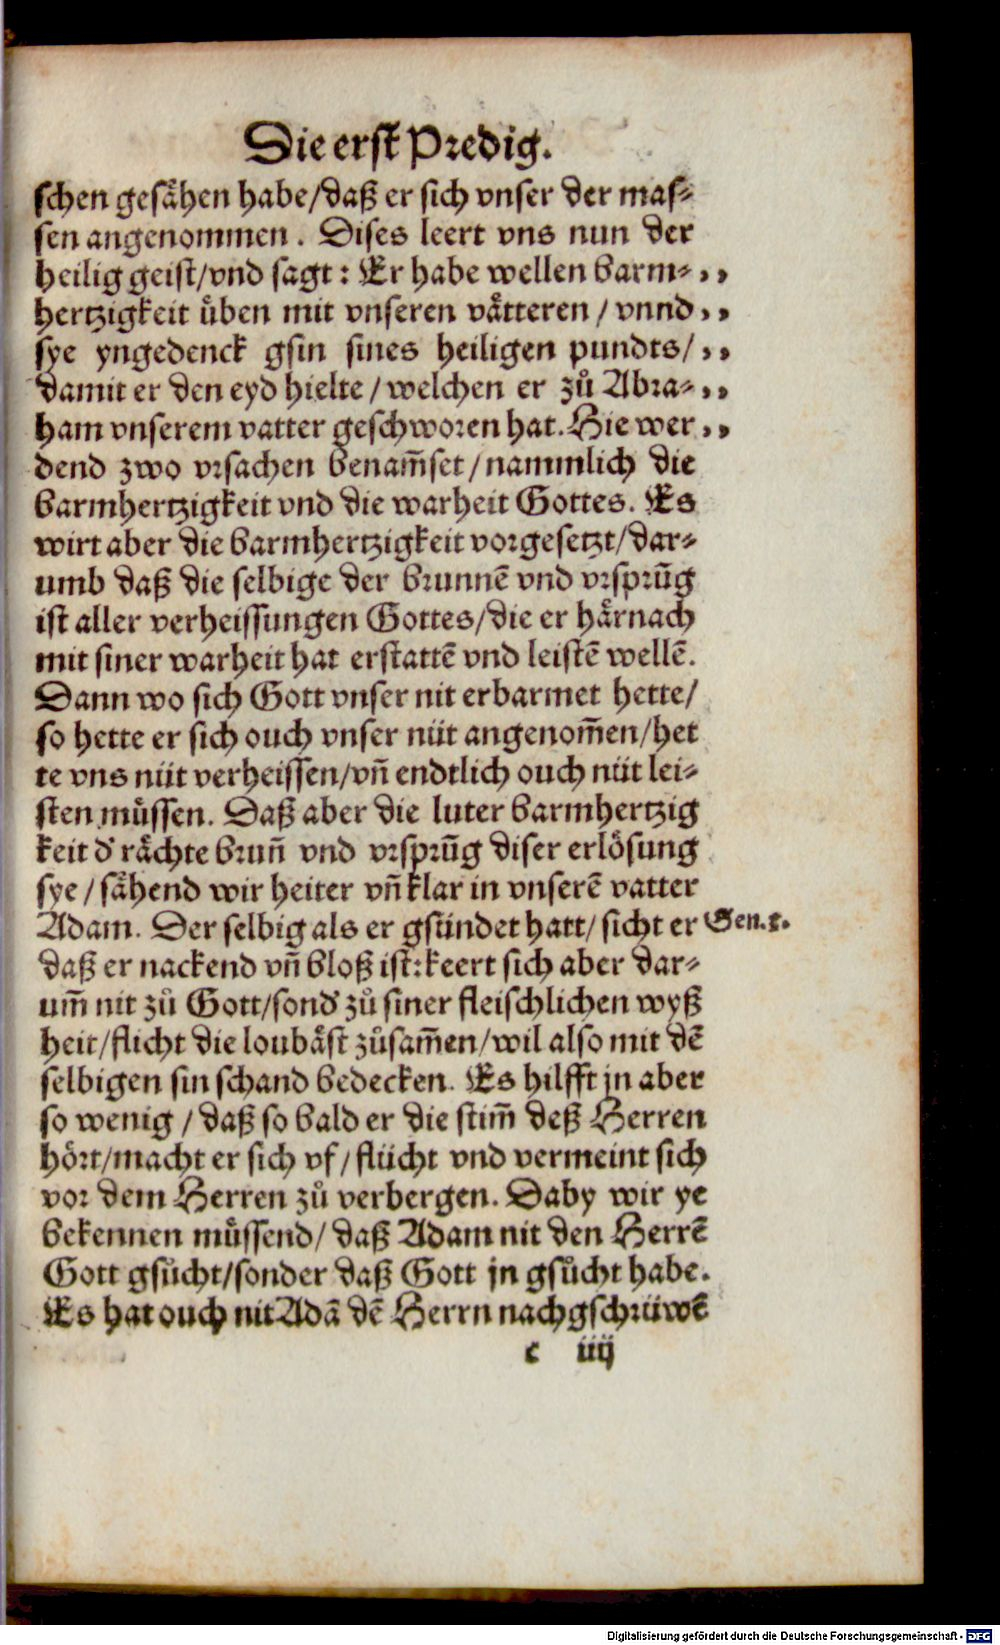 Die erst Predig.
schen gesåhen habe/daß er sich vnser der mas⸗
sen angenommen. Dises leert vns nun der
heilig geist/vnd sagt: Er habe wellen barm⸗ ,,
hertzigkeit ůben mit vnseren våtteren/ vnnd ,,
sye yngedenck gsin sines heiligen pundts/ ,,
damit er den eyd hielte/welchen er zů Abra⸗ ,,
ham vnserem vatter geschworen hat. Hie wer ,,
dend zwo vrsachen benam̄set/nammlich die
barmhertzigkeit vnd die warheit Gottes. Es
wirt aber die barmhertzigkeit vorgesetzt/dar⸗
umb daß die selbige der brunnē vnd vrsprūg
ist aller verheissungen Gottes/die er hårnach
mit siner warheit hat erstattē vnd leistē wellē.
Dann wo sich Gott vnser nit erbarmet hette/
so hette er sich ouch vnser nüt angenom̄en/het
te vns nüt verheissen/vn̄ endtlich ouch nüt lei⸗
sten můssen. Daß aber die luter barmhertzig
keit d' råchte brun̄ vnd vrsprūg diser erlösung
sye/såhend wir heiter vn̄ klar in vnserē vatter
Adam. Der selbig als er gsündet hatt/ sicht er Gen.3.
daß er nackend vn̄ bloß ist:keert sich aber dar⸗
um̄ nit zů Gott/sond' zů siner fleischlichen wyß
heit/flicht die loubåst zůsam̄en/wil also mit dē
selbigen sin schand bedecken. Es hilfft jn aber
so wenig/daß so bald er die stim̄ deß Herren
hört/macht er sich vf/flücht vnd vermeint sich
vor dem Herren zů verbergen. Daby wir ye
bekennen můssend/daß Adam nit den Herrē
Gott gsůcht/sonder daß Gott jn gsůcht habe.
Es hat ouch nit Adā dē Herrn nachgschrüwē
c iiij
Digitalisierung gefördert durch die Deutsche Forschungsgemeinschaft - DFG